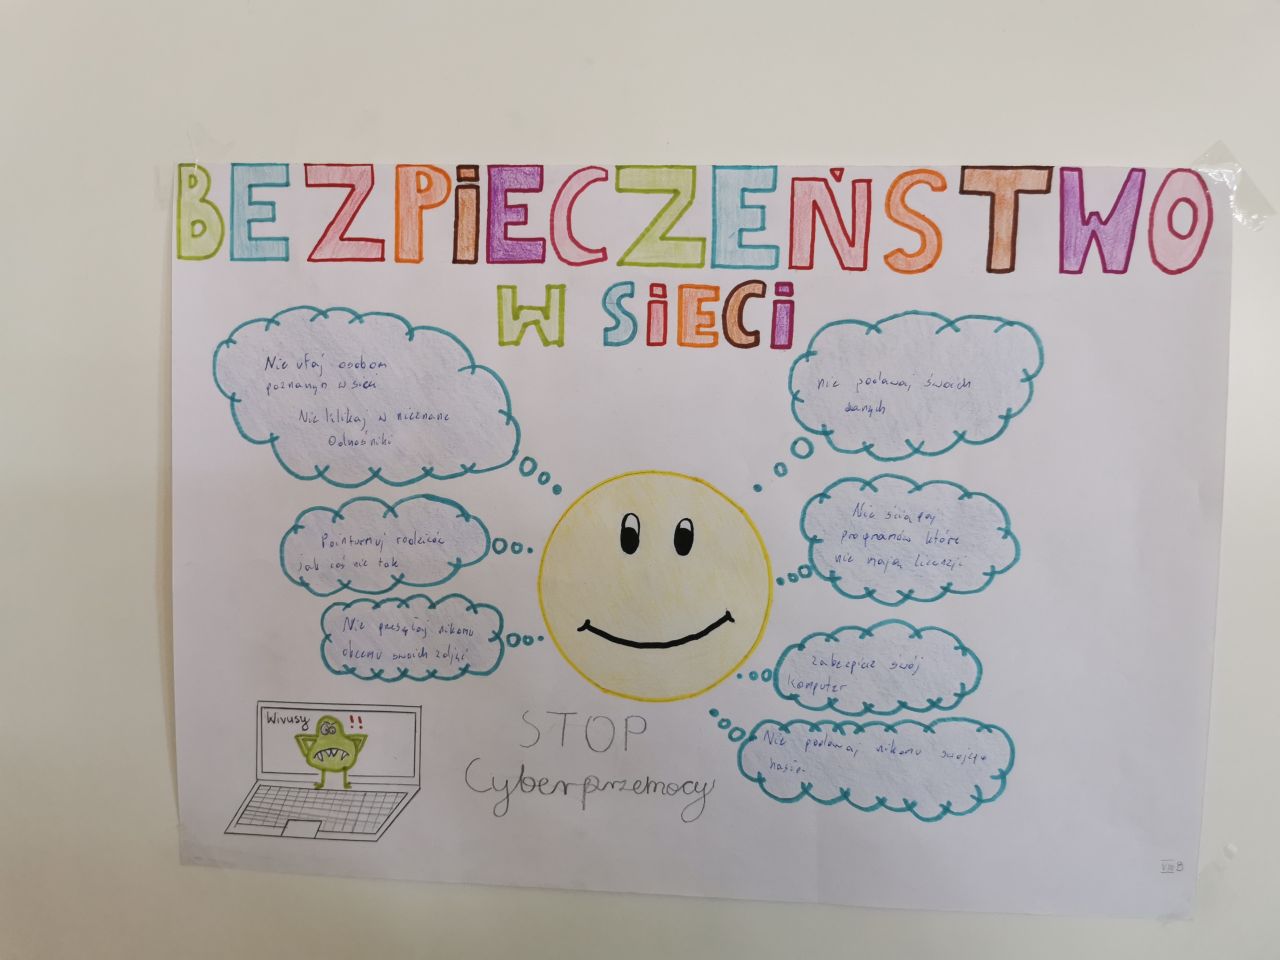 BEZPIECZEŃSTWO
W SIECI
Nie ufaj osobom
poznanym w sieci
Nie klikaj w nieznane
Odnośniki
nie podawaj swoich
danych
Poinformuj rodziców
jak coś nie tak
Nie ściągaj
programów które
nie mają licencji
Nie przesyłaj nikomu
obcemu swoich zdjęć
Zabezpiecz swój
komputer
Nie podawaj nikomu swojego
hasła.
Wirusy !!
STOP
Cyberprzemocy
VIII B